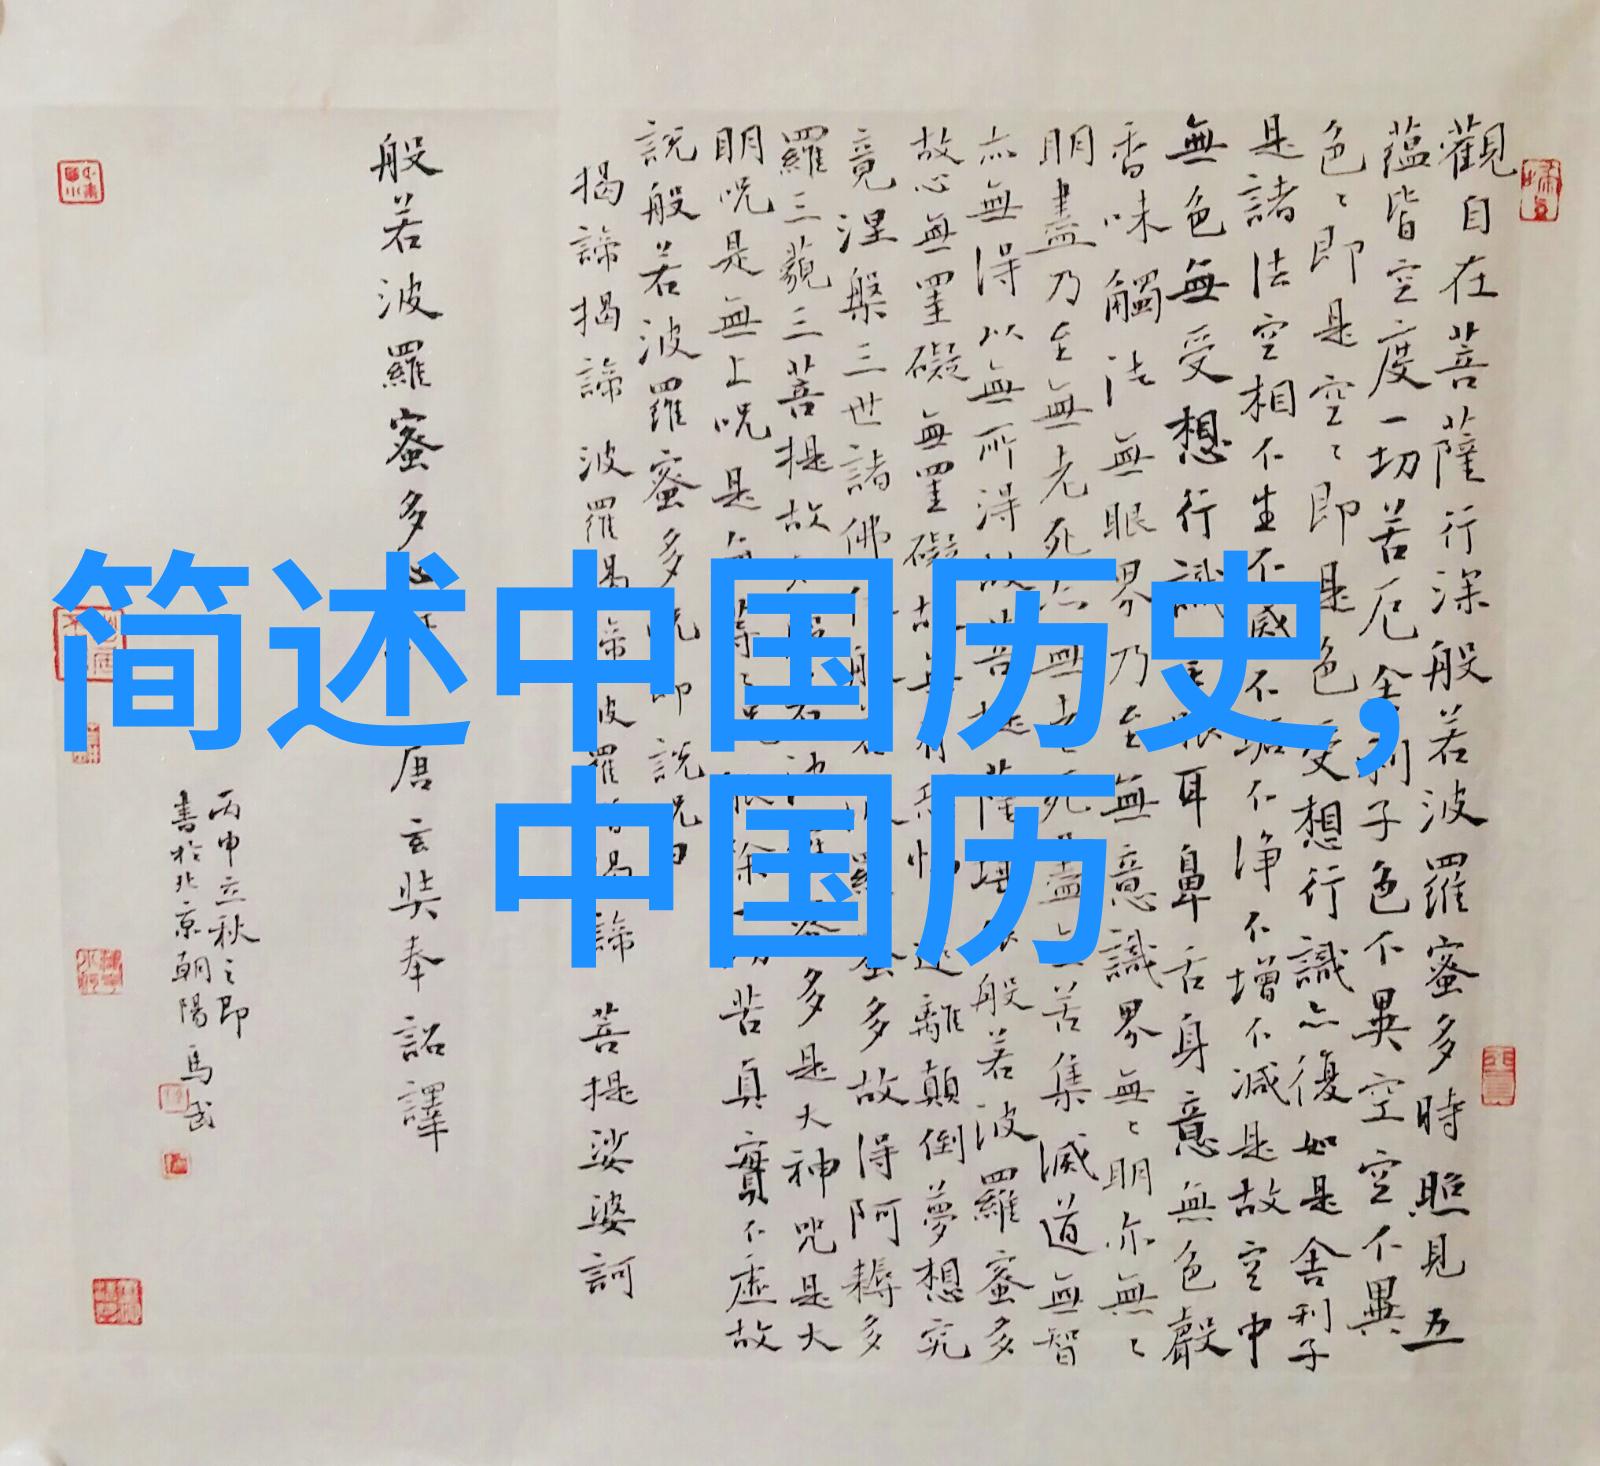 简述中国历史,
中国历
觀自在菩薩行深般若波羅蜜多時照見五
蘊皆空度一切苦厄舍利子色不異空空不異
色〻即是空〻即是色受想行識亦復如是舍利子
是諸法空相不生不滅不垢不净不增不減是故空中
無色無受想行識無眼耳鼻舌身意無色聲
香味觸法無眼界乃至無意識界無〻明亦無〻
明盡乃至無老死亦無老死盡無苦集滅道無智
亦無得以無所得故菩提薩埵依般若波羅蜜多
故心無罣礙無罣礙故無有恐怖遠離顛倒夢想究
竟涅槃三世諸佛依般若波羅蜜多故得阿耨多
羅三藐三菩提故知般若波羅蜜多是大神咒是大
明呪是無上呪是無等〻呪能除一切苦真實不虛故
説般若波羅蜜多呪即説呪曰
揭諦揭諦 波羅揭諦 波羅僧揭諦 菩提娑婆訶
般若波羅蜜多心經 唐玄奘奉詔譯
丙申立秋之即
書於北京朝陽 馬武